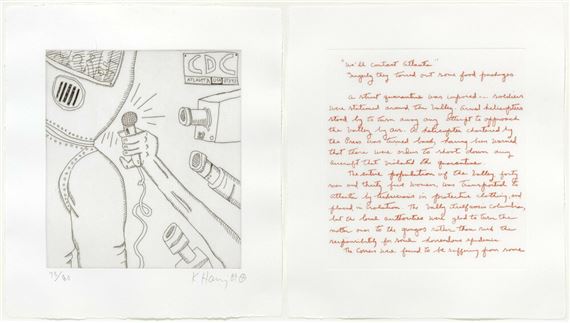 CDC
ATLANTA USA
K. Haring 89
"We'll contact Atlanta"
they out some food packages
A strict quarantine was imposed -- soldiers
were stationed around the Valley. Armed helicopters
stood by to turn away any attempt to approach
the Valley by air. A helicopter chartered by
the Press was turned back, having been warned
that there were orders to shoot down any
aircraft that violated the quarantine.
The entire population of the Valley, forty
men and thirty five women, was transported to
Atlanta by technicians in protective clothing and
placed in isolation. The Valley Columbia,
but the local authorities were glad to turn the
matter over to the gringos rather than risk the
responsibility for some horrendous epidemic.
The were found to be suffering from some